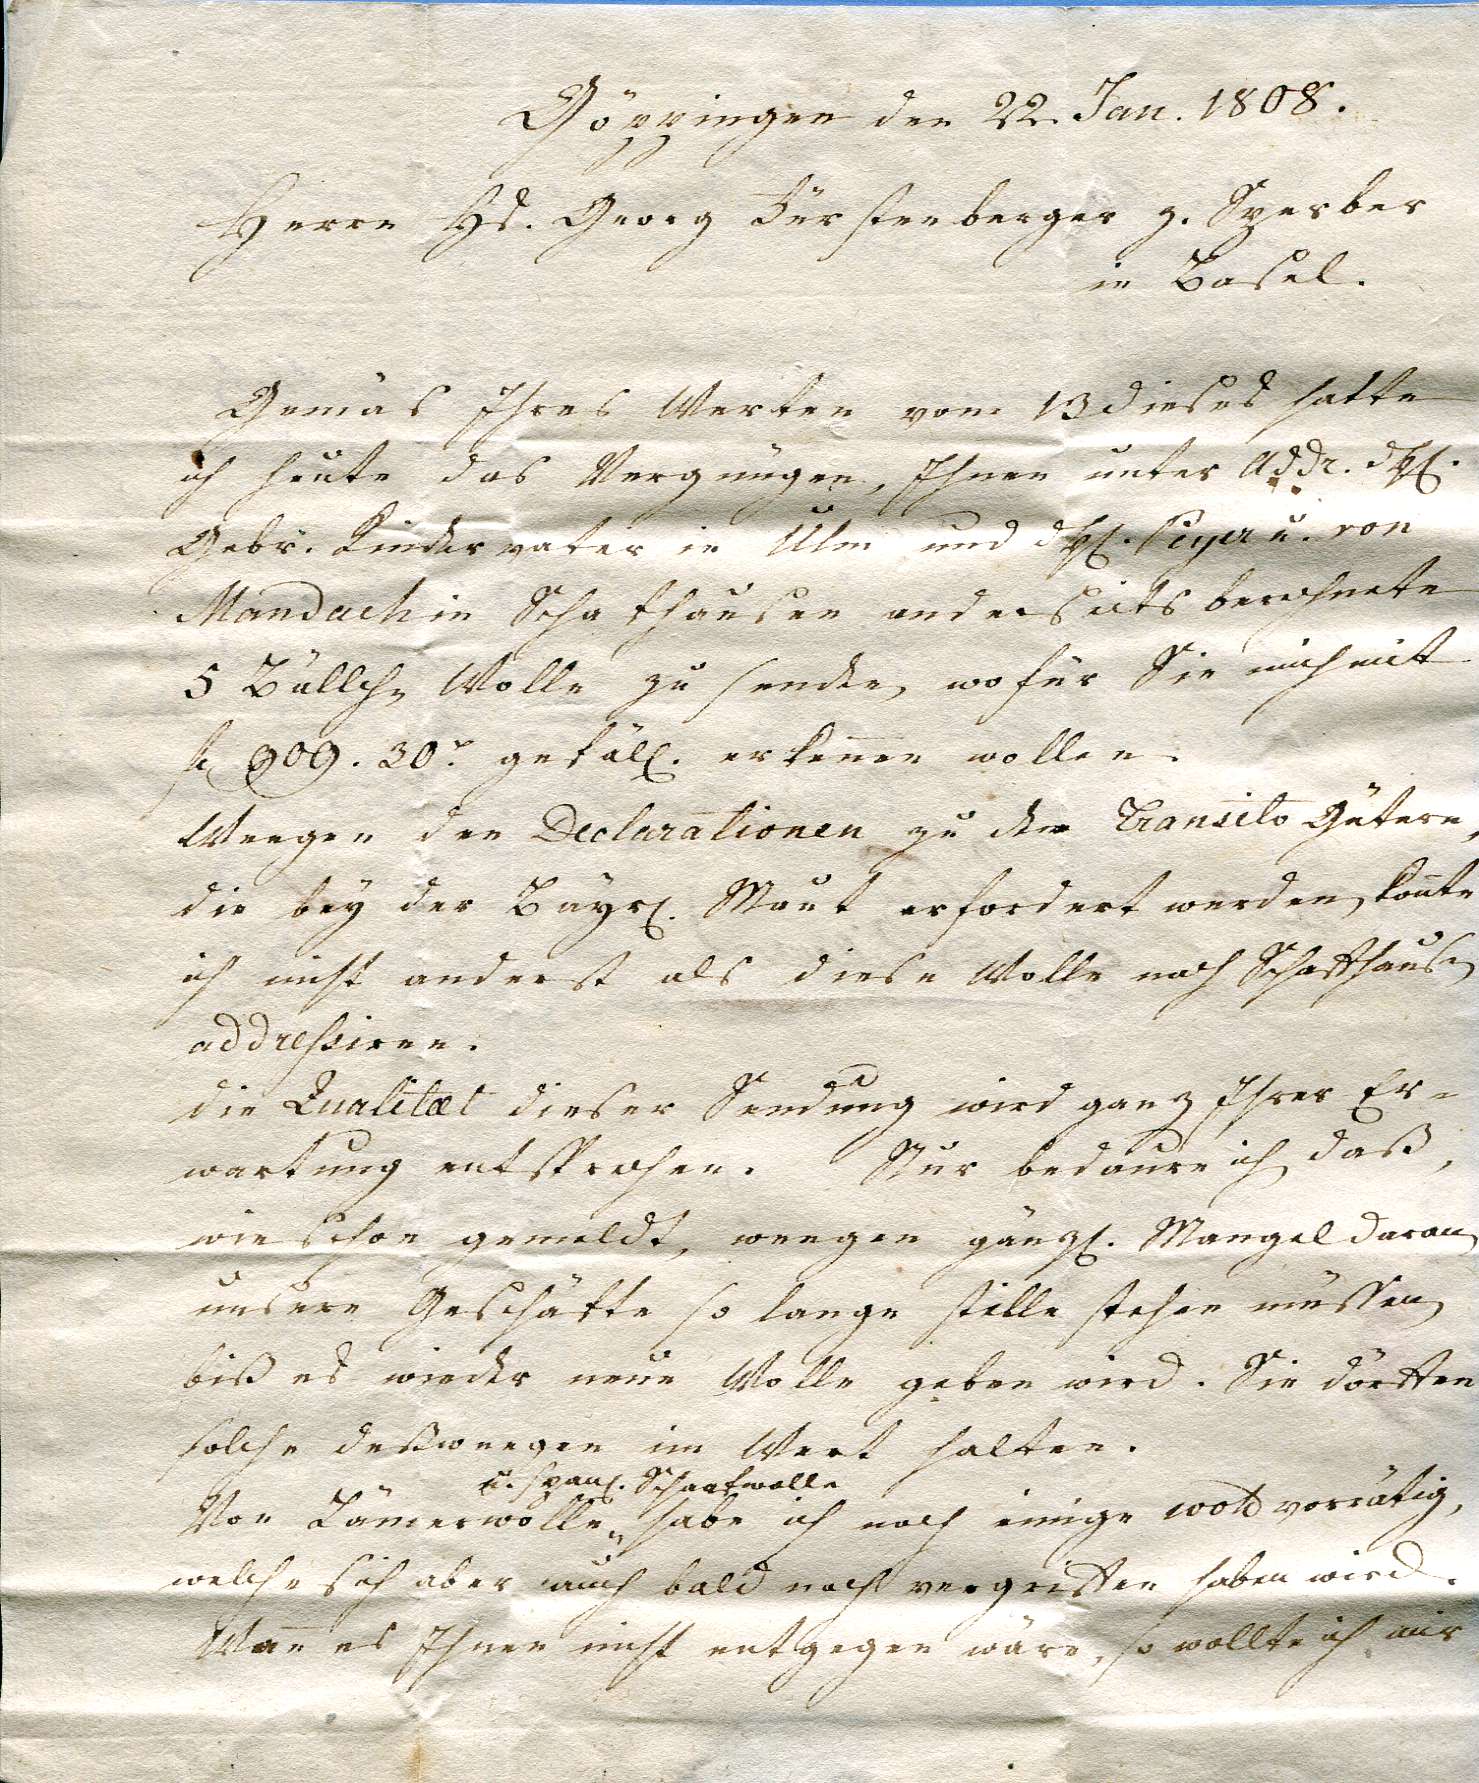 Göppingen den 22. Jan. 1808.
Herrn Hs. Georg Fürstenberger z. Sperber
in Basel.
Gemäs Ihres Werten vom 13 dieses hatte
ich heute das Vergnügen, Ihnen unter Addr. dHH.
Gebr. Kindervater in Ulm und dHH. u. von
Mandach in Schafhausen anderseits berechnete
5 Bällchn Wolle zu senden, wofür Sie mich mit
f 909. 30 x. gefäll. erkennen wollen.
Weegen den Declarationen zu den Transito Gütern,
die bey der Bayr. Maut erfordert werden, konnte
ich nicht anderst als diese Wolle nach Schaffhausn
addressiren.
die Qualitæt dieser Sendung wird ganz Ihrer Er-
wartung entsprechen. Nur bedaure ich, daß,
wie schon gemeldt, weegen gänzl. Mangel daran
unsere Geschäfte so lange stille stehen müssen,
biß es wieder neue Wolle geben wird. Sie dörften
solche deßweegen im Wert halten.
u. span. Schaafwolle
Von Lämerwolle habe ich noch einige vorrätig,
welche sich aber auch bald noch vergriffen haben wird.
Wann es Ihnen nicht entgegen wäre, so wollte ich mir